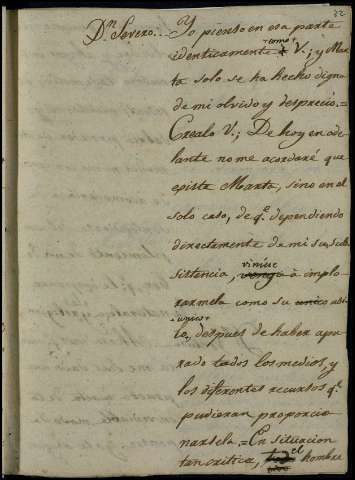 32
Dⁿ Severo... Yo pienso en esa parte
idénticamente como V.; y Mar
ta solo se ha hecho digna
de mi olvido y desprecio.=
Crealo V.; De hoy en ade
lante no me acordaré que
epista Marta, sino en el
solo caso, de qᵉ dependiendo
directamente de mi su sub
sistencia, viniese à implo
rarmela como su unico asi
lo, después de haber apu
rado todos los medios, y
los diferentes recursos qᵉ
pudieran proporcio
narsela = En situacion
tan critica, el hombre